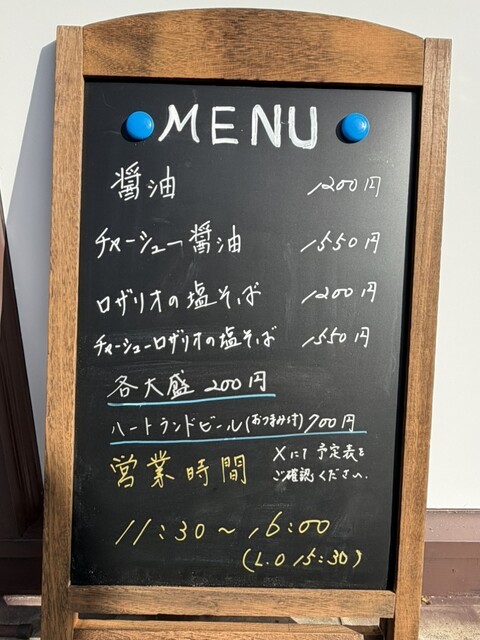 MENU
醤油 1200円
チャーシュー醤油 1550円
ロザリオの塩そば 1200円
チャーシューロザリオの塩そば 1550円
各大盛 200円
ハートランドビール(おつまみ付) 700円
営業時間 Xにて予定表を
ご確認ください.
11:30～16:00
(L.O 15:30)